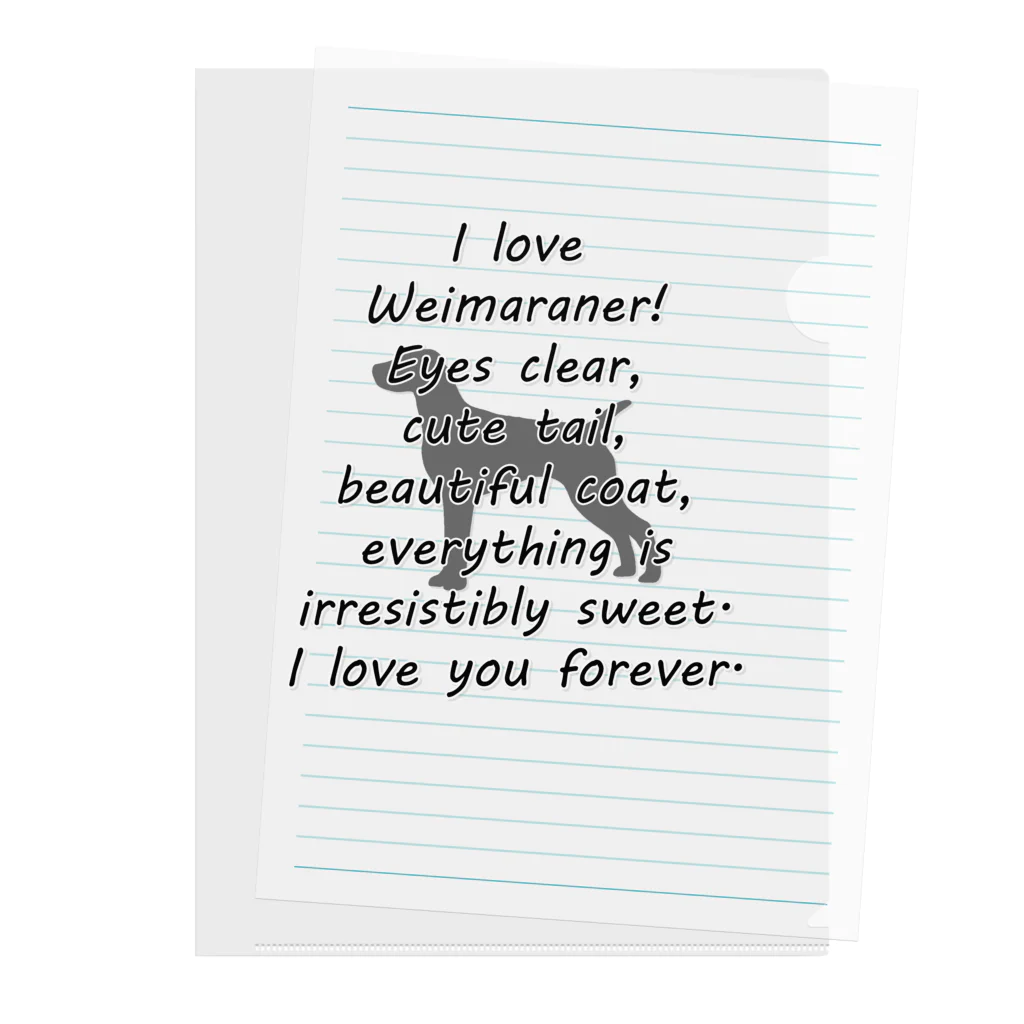 I love
Weimaraner!
Eyes clear,
cute tail,
beautiful coat,
everything is
irresistibly sweet.
I love you forever.